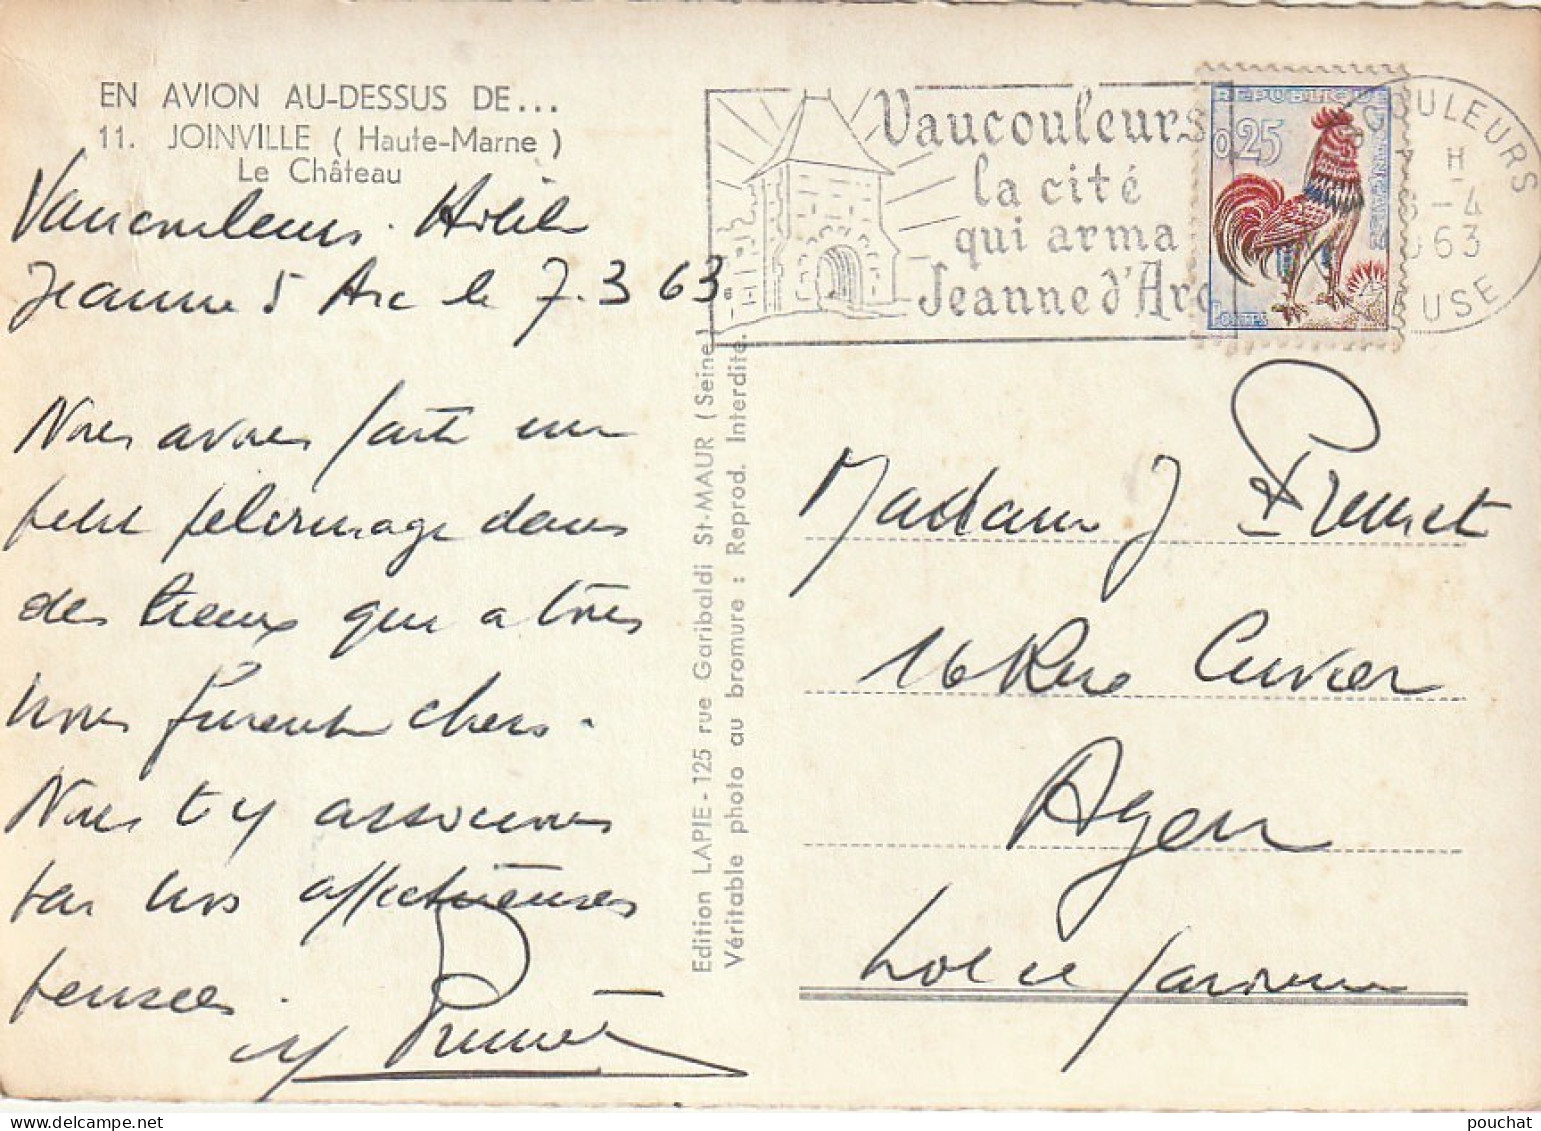 EN AVION AU-DESSUS DE...
11. JOINVILLE ( Haute-Marne )
Le Château
Vaucouleurs. Hôtel
Jeanne d'Arc le 7.3 63
Nous avons fait un
petit pelerinage dans
des lieux qui a tous
nous furent chers.
Nous t'y associons
par nos affectueuses
pensées.
Prunet
Edition LAPIE - 125 rue Garibaldi St-MAUR ( Seine )
Véritable photo au bromure : Reprod. Interdite.
Vaucouleurs
la cité
qui arma
Jeanne d'Arc
REPUBLIQUE
0,25
POSTES
COULEURS
H
-4
63
USE
Madame J Prunet
16 Rue Cuvier
Agen
Lot et Garonne
pouchat